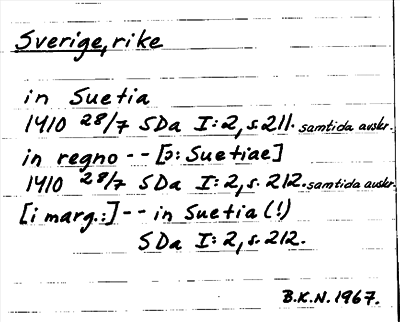 Sverige, rike
in Suetia
1410 28/7 SDa I:2, s. 211. samtida avskr.
in regno -- [ɔ: Suetiae]
1410 28/7 SDa I:2, s. 212. samtida avskr.
[i marg.:] -- in Suetia (!)
SDa I:2, s. 212.
B.K.N. 1967.